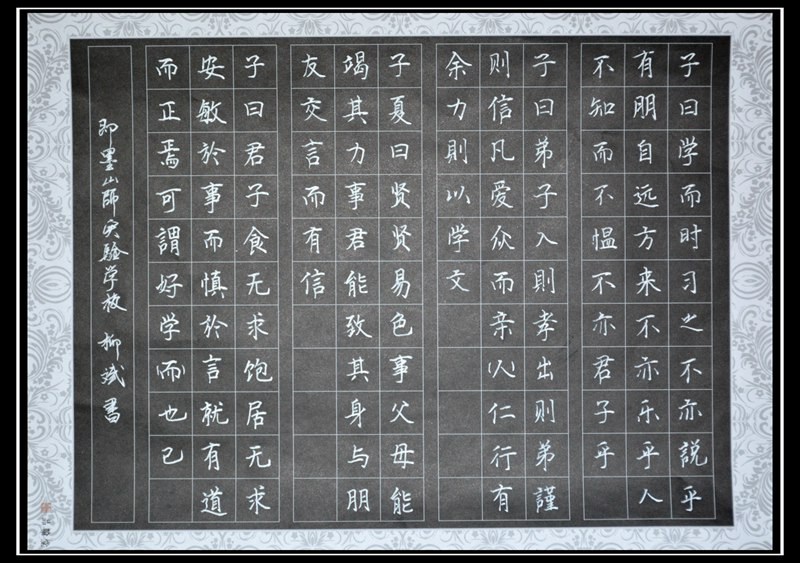 子曰学而时习之不亦説乎
有明自远方来不亦乐乎人
不知而不愠不亦君子乎
子曰弟子入則孝出则弟謹
则信凡爱众而亲以仁行有
余力則以学文
子夏曰贤贤易色事父母能
竭其力事君能致其身与朋
友交言而有信
子曰君子食无求饱居无求
安敏於事而慎於言就有道
而正焉可謂好学(而)也己
即墨山師实验学校 柳斌書